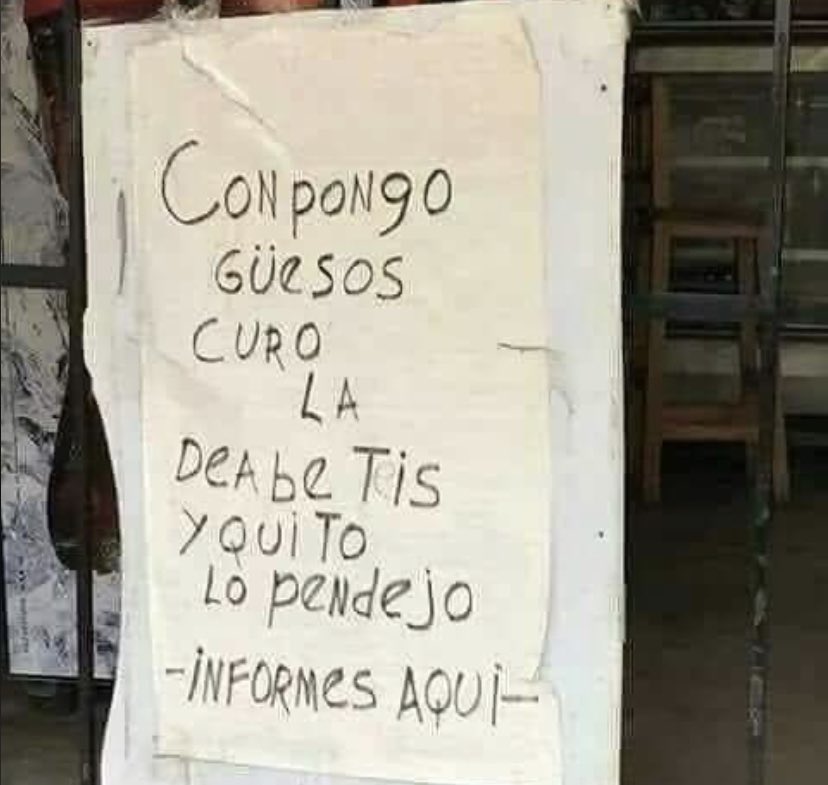 CONPONGO
GÜESOS
CURO
LA
DEABETIS
Y QUITO
LO PENDEJO
-INFORMES AQUI-